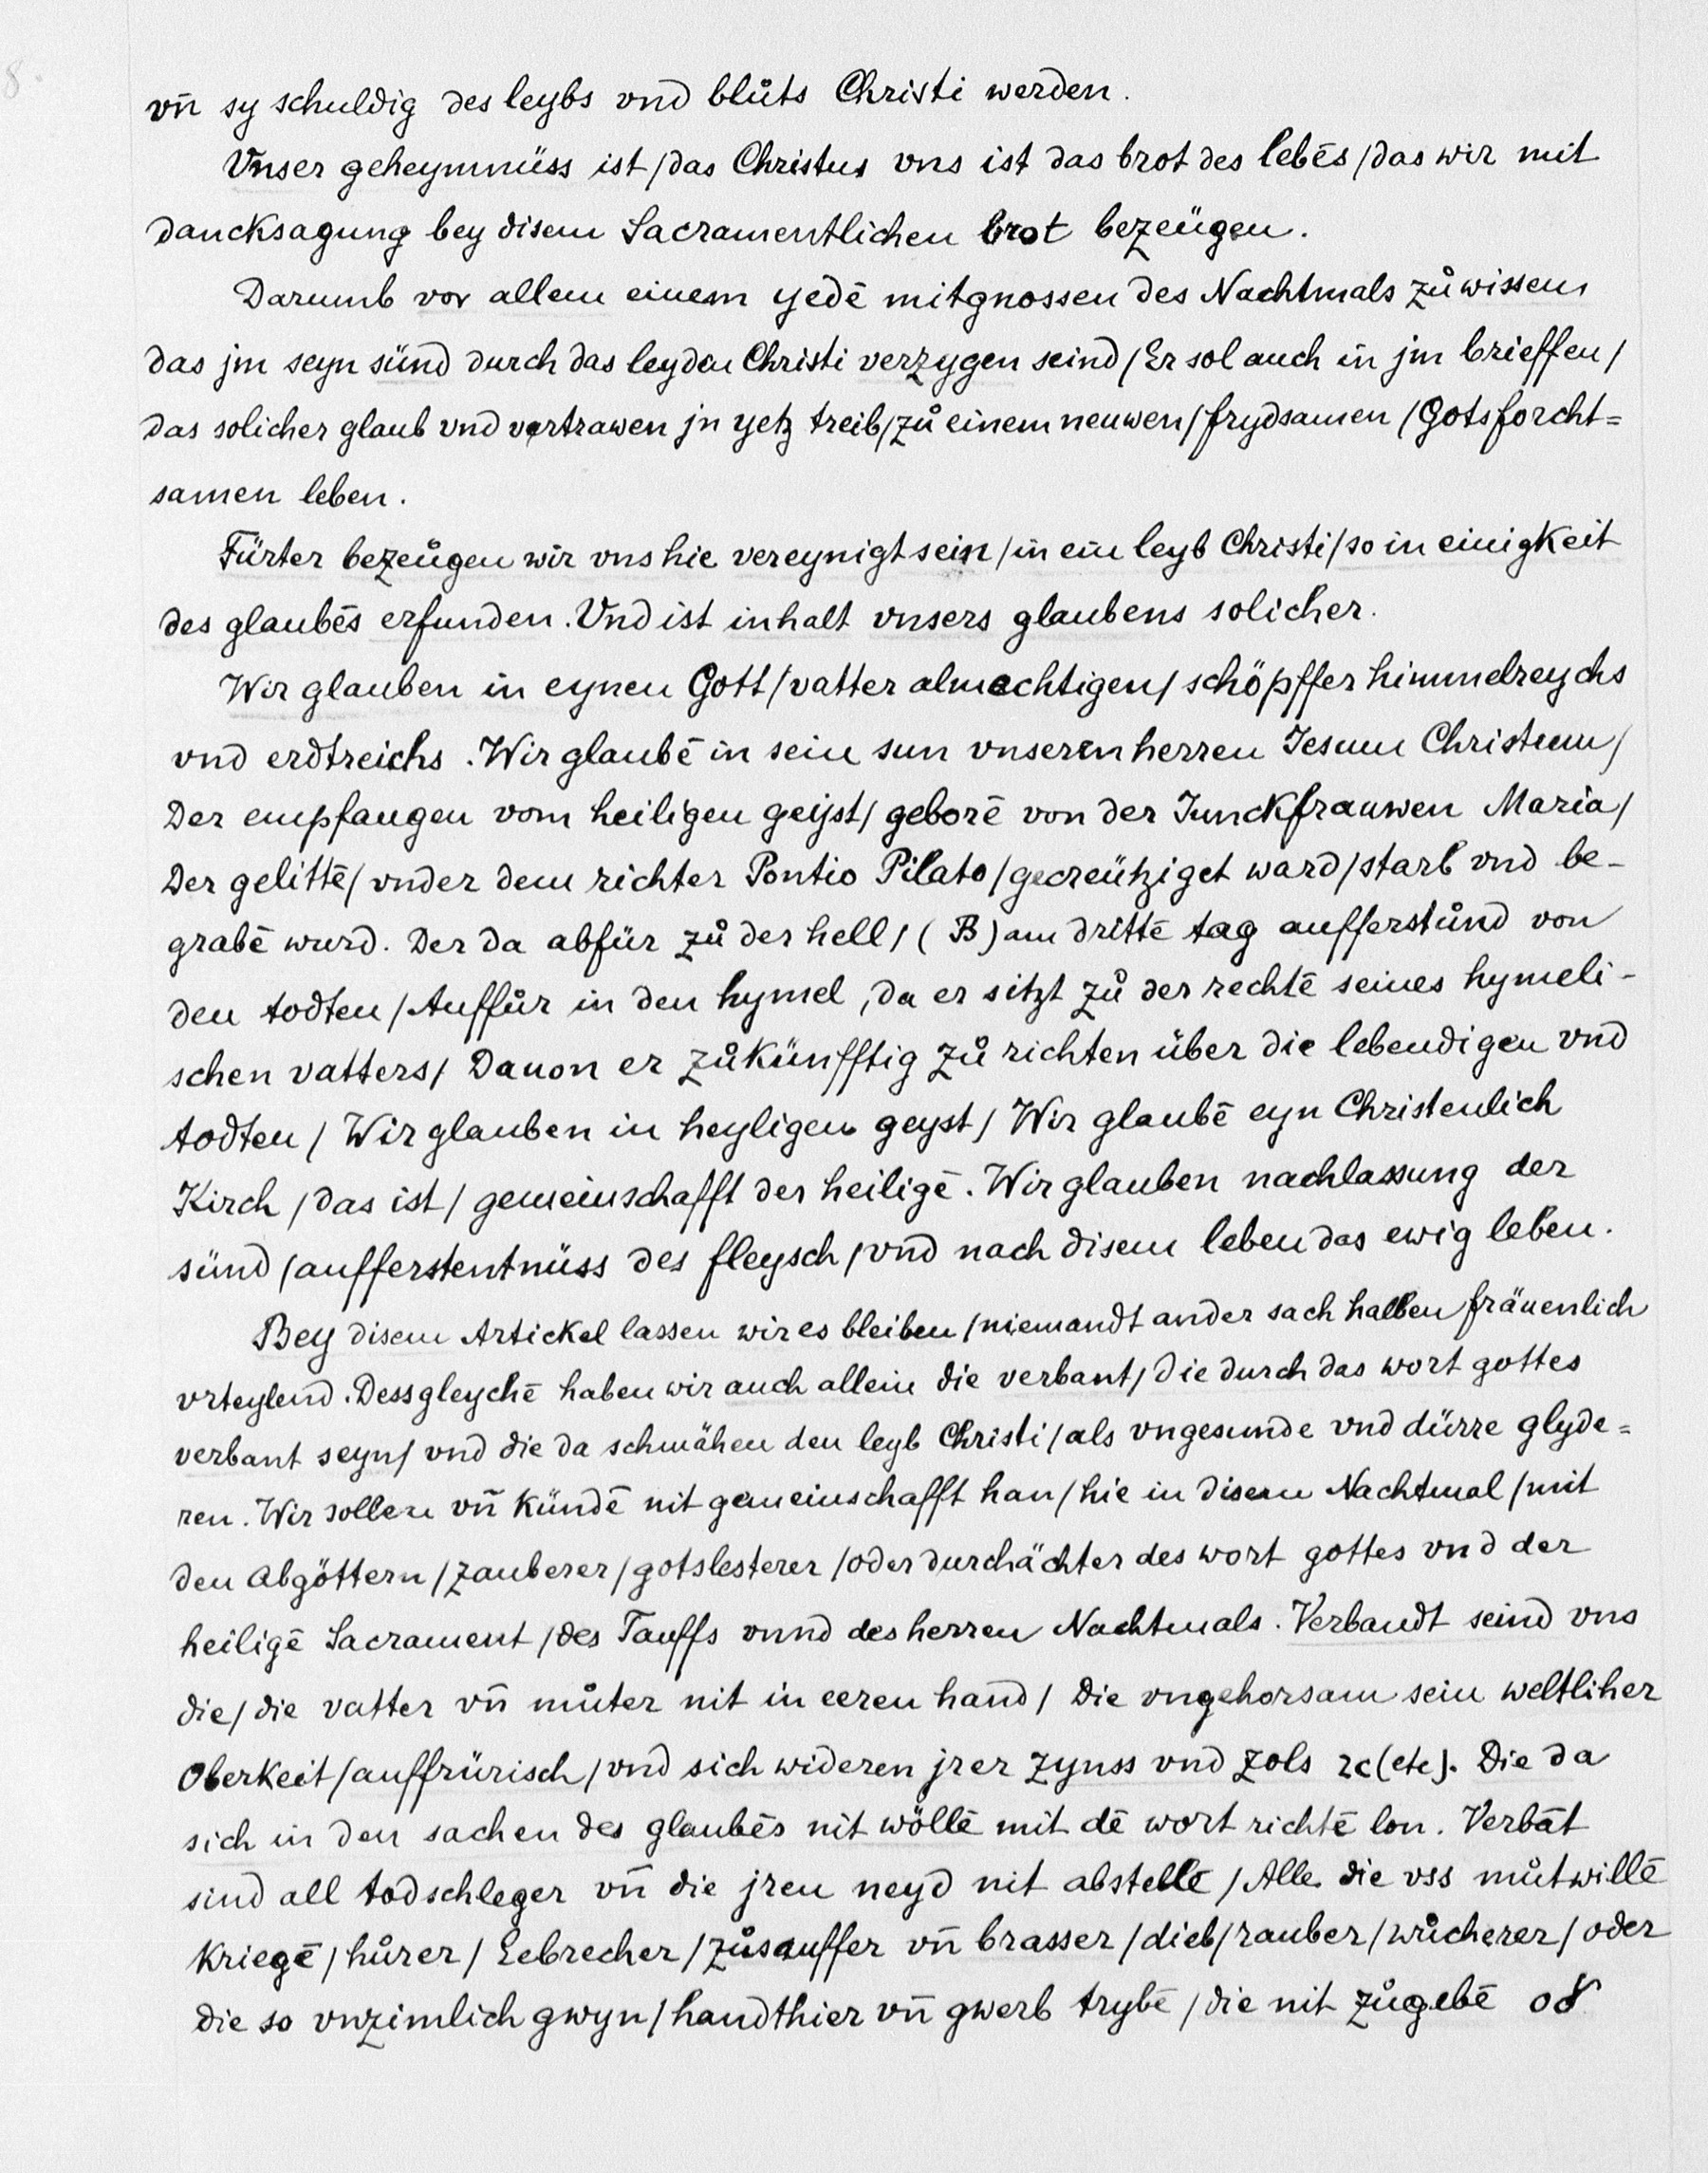 8.
vn̄ sy schuldig des leybs vnd blůts Christi werden.
Vnser geheymnüss ist / das Christus vns ist das brot des lebēs / das wir mit
dancksagung bey disem Sacramentlichen brot bezeügen.
Darumb vor allem einem yedē mitgnossen des Nachtmals zů wissen
das jm seyn sünd durch das leyden Christi verzygen seind / Er sol auch in jm brieffen /
das solicher glaub vnd vertrawen jn yetz treib / zů einem neuwen / frydsamen / Gotsforcht=
samen leben.
Fürter bezeügen wir vns hie vereynigt sein / in ein leyb Christi / so in einigkeit
des glaubēs erfunden. Vnd ist inhalt vnsers glaubens solicher.
Wir glauben in eynen Gott / vatter almechtigen / schöpffer himmelreychs
vnd erdtreichs. Wir glaubē in sein sun vnseren herren Jesum Christum /
Der empfangen vom heiligen geijst / geborē von der Junckfrauwen Maria /
Der gelittē / vnder dem richter Pontio Pilato / gecreütziget ward / starb vnd be-
grabē wurd. Der da abfür zů der hell / (B) am drittē tag aufferstůnd von
den todten / Auffůr in den hymel, da er sitzt zů der rechtē seines hymeli-
schen vatters / Dauon er zůkünfftig zů richten über die lebendigen vnd
todten / Wir glauben in heyligen geyst / Wir glaubē eyn Christenlich
Kirch / das ist / gemeinschafft der heiligē. Wir glauben nachlassung der
sünd / aufferstentnüss des fleysch / vnd nach disem leben das ewig leben.
Bey disem Artickel lassen wir es bleiben / niemandt ander sach halben fräuenlich
vrteylend. Dessgleychē haben wir auch allein die verbant / die durch das wort gottes
verbant seyn / vnd die da schmähen den leyb Christi / als vngesunde vnd dürre glyde=
ren. Wir sollen vn̄ kündē nit gemeinschafft han / hie in disem Nachtmal / mit
den Abgöttern / zauberer / gotslesterer / oder durchächter des wort gottes vnd der
heiligē Sacrament / des Tauffs vnnd des herren Nachtmals. Verbandt seind vns
die / die vatter vn̄ můter nit in eeren hand / die vngehorsam sein weltliher
Oberkeit / auffrürisch / vnd sich wideren jrer zynss vnd zols ꝛc (etc). Die da
sich in den sachen des glaubēs nit wöllē mit dē wort richtē lon. Verbāt
sind all todschleger vn̄ die jren neyd nit abstellē / Alle die vss můtwillē
kriegē / hůrer / Eebrecher / zůsauffer vn̄ brasser / dieb / rauber / wůcherer / oder
die so vnzimlich gwyn / handthier vn̄ gwerb trybē / die nit zůgebē od